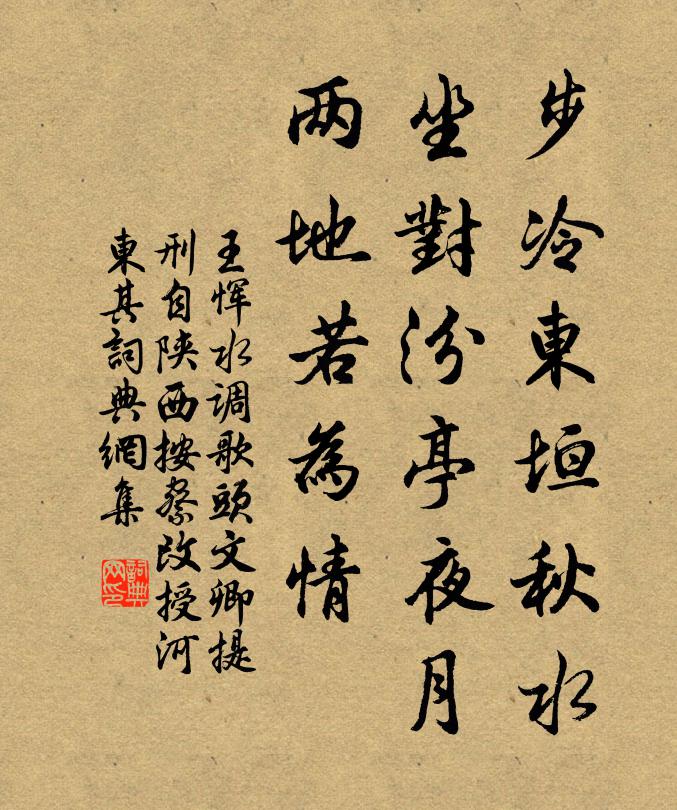 步冷東垣秋水
坐對汾亭夜月
两地若為情
王恽水调歌頭文卿提
刑自陕西按察改授河
東其詞典網集
詞典
网印